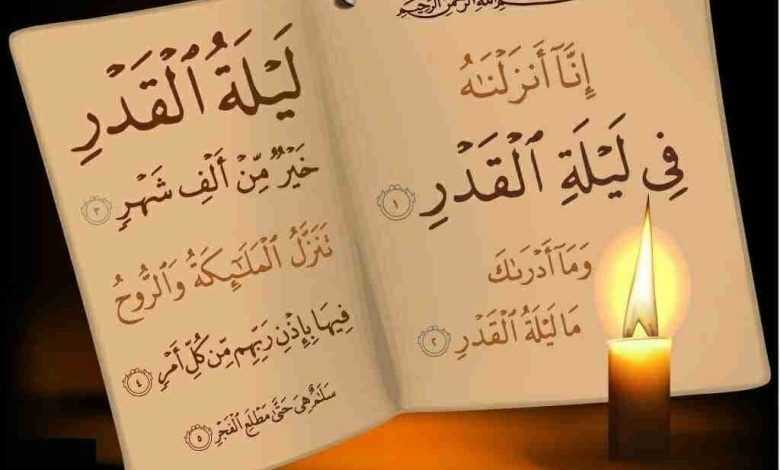 بسم الله الرحمن الرحيم
إِنَّآ أَنزَلْنَٰهُ
فِى لَيْلَةِ ٱلْقَدْرِ ١
وَمَآ أَدْرَىٰكَ
مَا لَيْلَةُ ٱلْقَدْرِ ٢
لَيْلَةُ ٱلْقَدْرِ
خَيْرٌ مِّنْ أَلْفِ شَهْرٍ ٣
تَنَزَّلُ ٱلْمَلَٰٓئِكَةُ وَٱلرُّوحُ
فِيهَا بِإِذْنِ رَبِّهِم مِّن كُلِّ أَمْرٍ ٤
سَلَٰمٌ هِىَ حَتَّىٰ مَطْلَعِ ٱلْفَجْرِ ٥